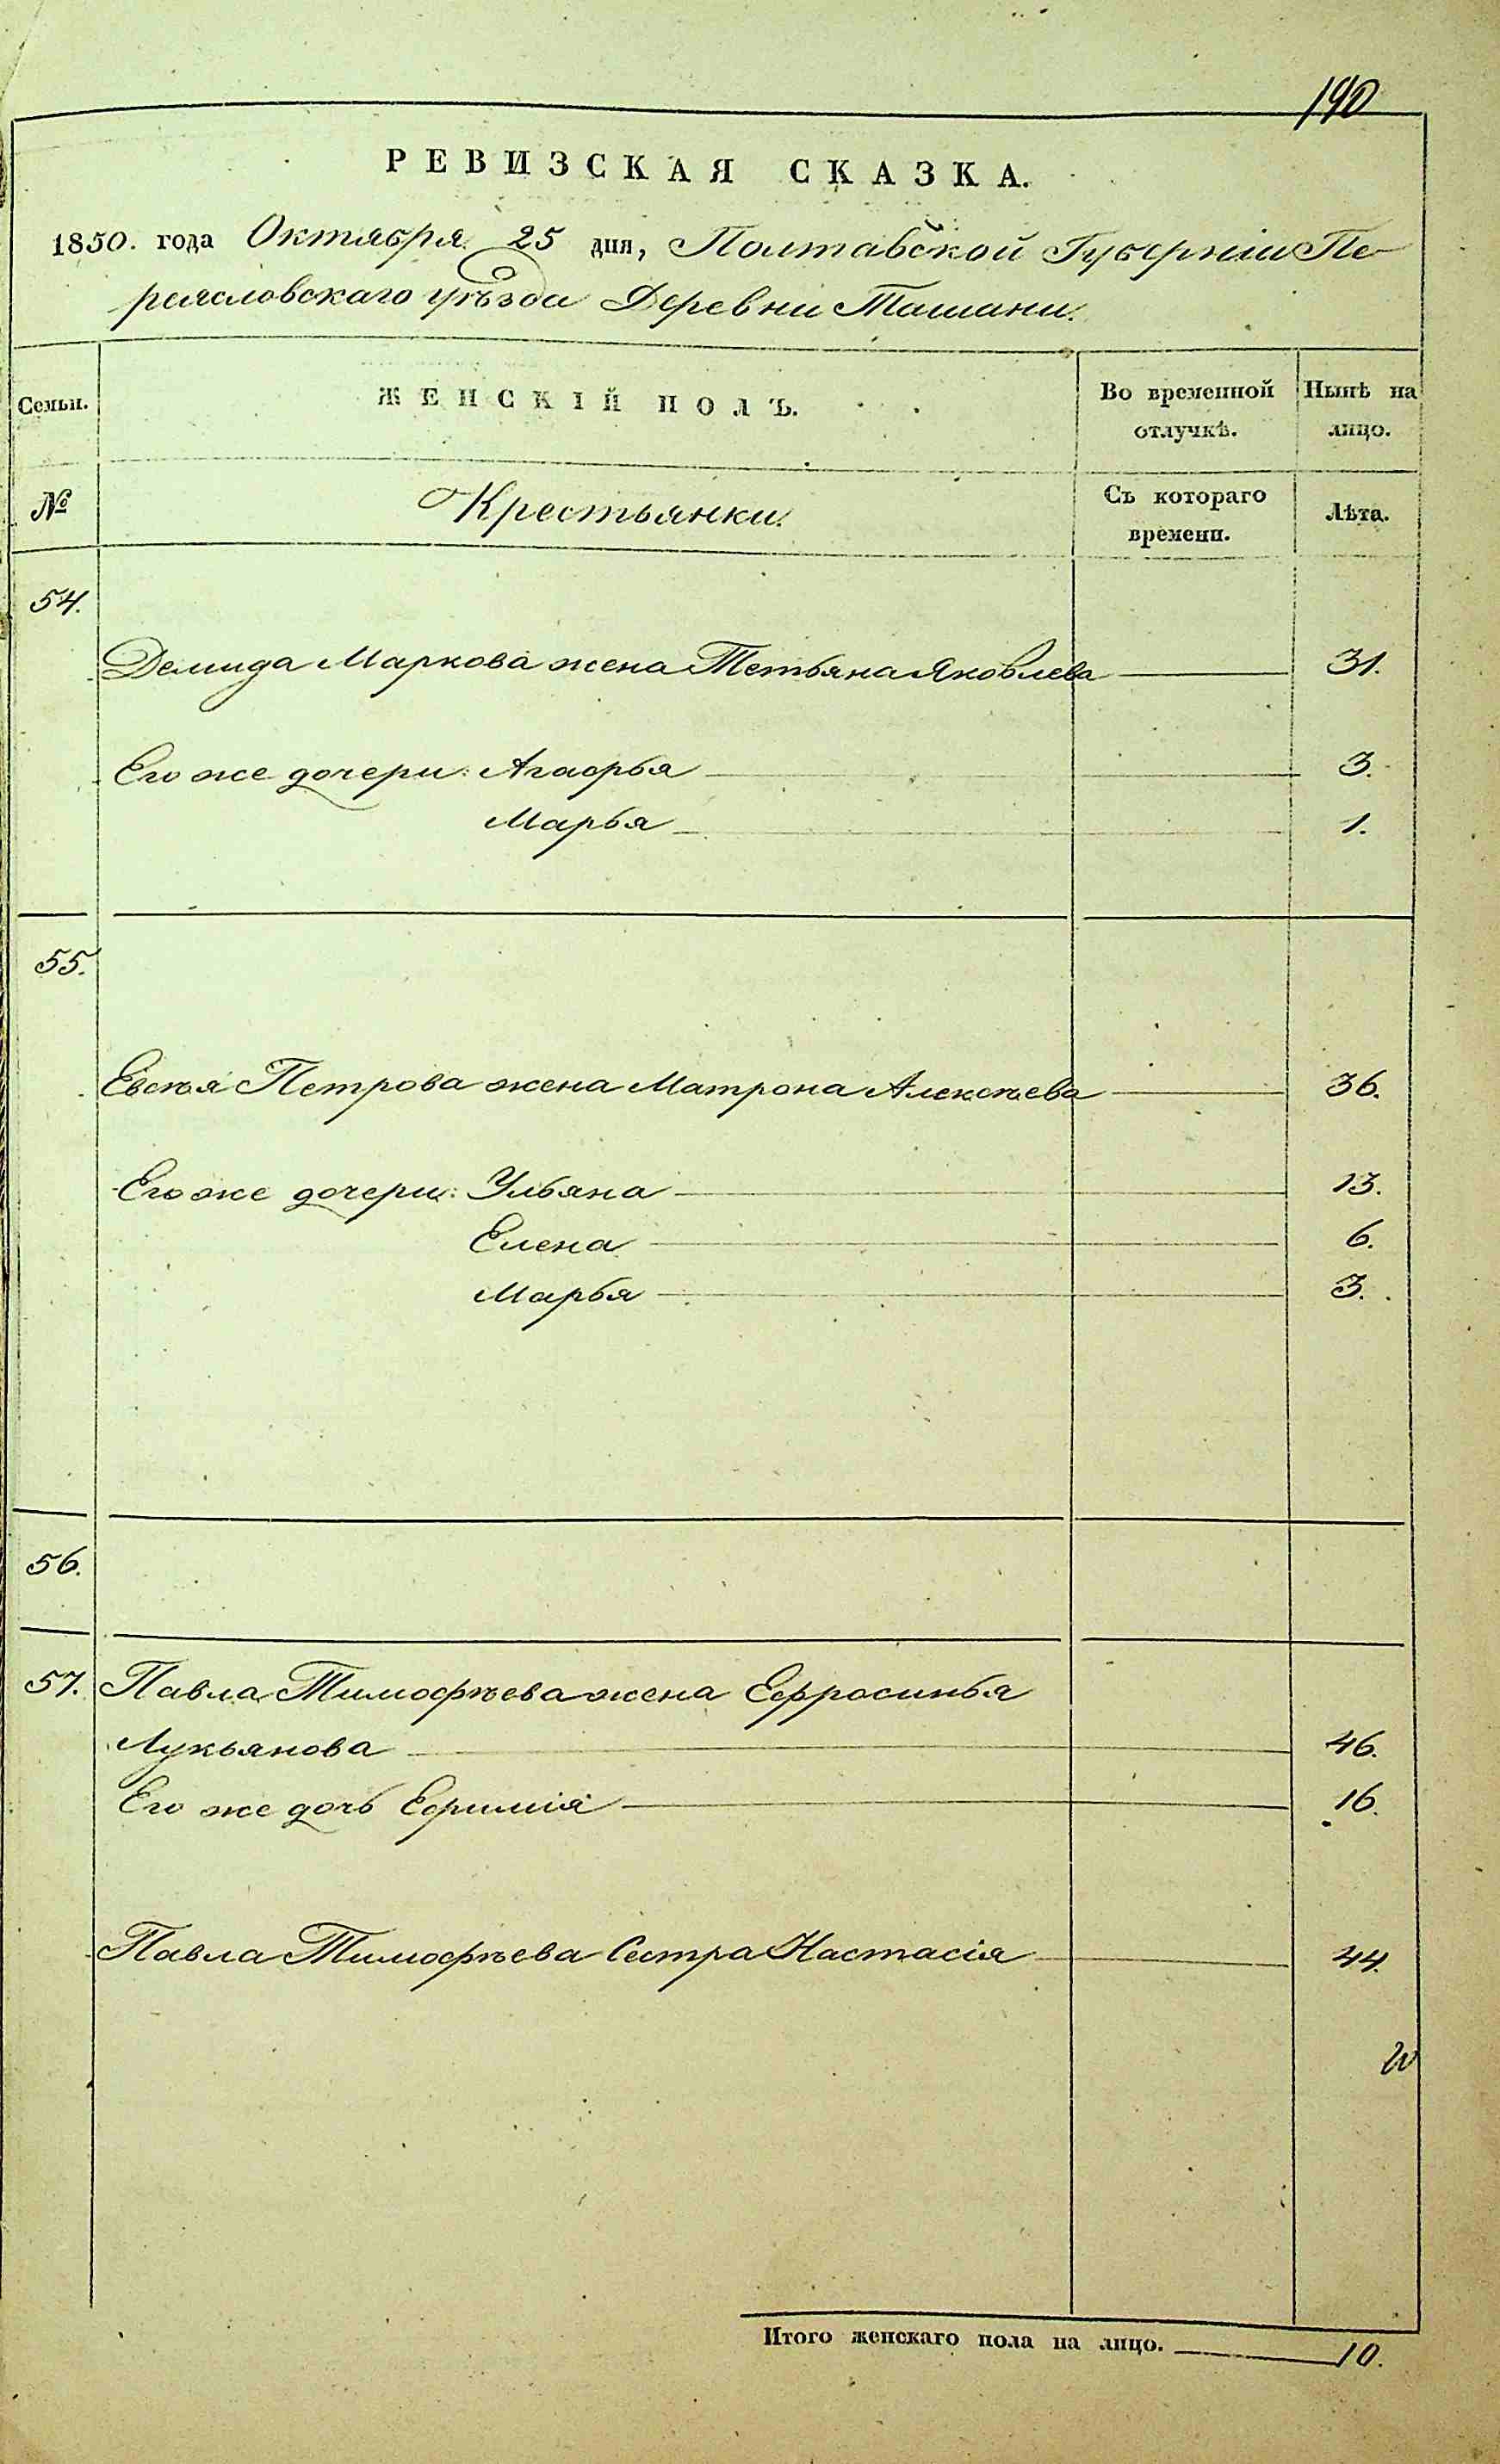 190
РЕВИЗСКАЯ СКАЗКА.
1850. года Октября 25 дня, Полтавской Губерніи Пе-
реясловскаго уѣзда Деревни Ташани.
Семьи. ЖЕНСКІЙ ПОЛЪ. Во временной отлучкѣ. Нынѣ на лицо.
№ Крестьянки. Съ котораго времени. Лѣта.
54.
Демида Маркова жена Тетьяна Яковлева 31.
Его же дочери: Агафья 3.
Марья 1.
55.
Евсѣя Петрова жена Матрона Алексѣева 36.
Его же дочери: Ульяна 13.
Елена 6.
Марья 3.
56.
57. Павла Тимофѣева жена Ефросинья
Лукьянова 46.
Его же дочь Ефимія 16.
Павла Тимофѣева Сестра Настасія 44.
Итого женскаго пола на лицо. 10.